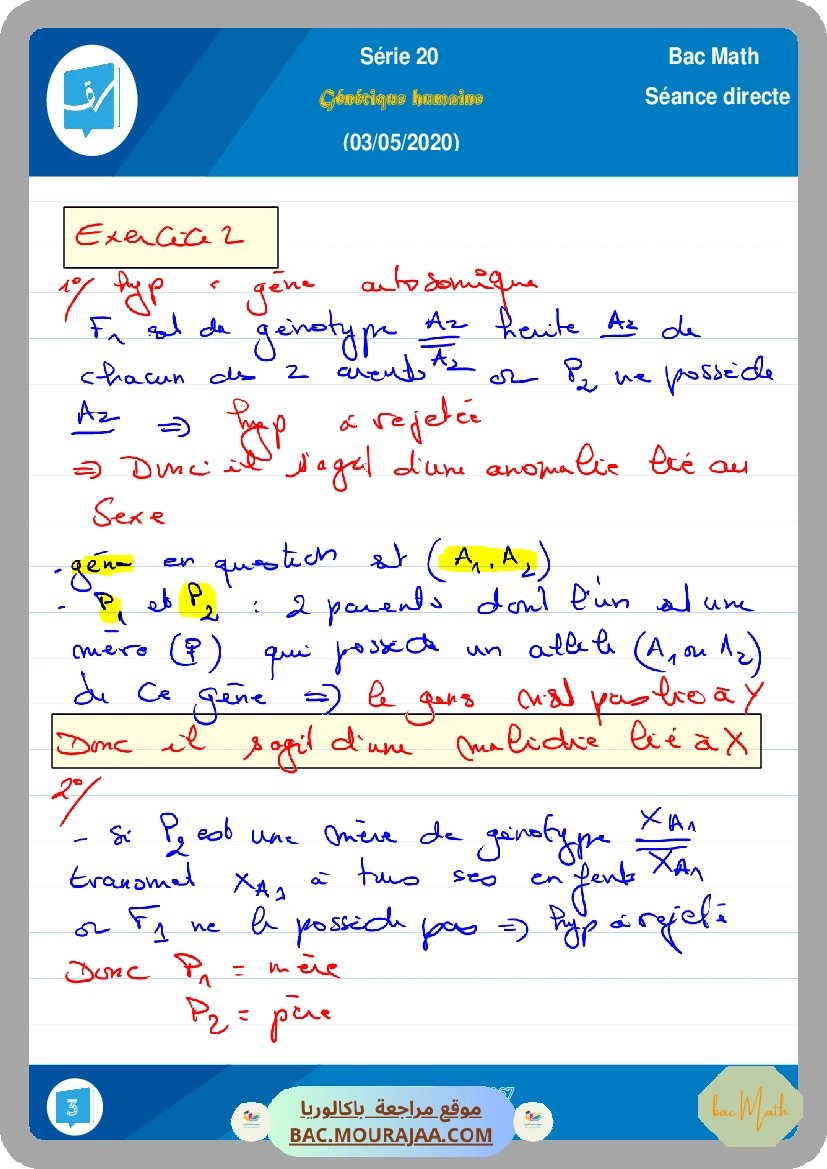 Série 20
Bac Math
Génétique humaine
Séance directe
(03/05/2020)
Exercice 2
1°/ hyp : gène autosomique
F1 est de génotype A2/A2 hérite A2 de
chacun des 2 parents or P2 ne possède
A2 ⇒ hyp à rejetée
⇒ Donc il s'agit d'une anomalie lié au
Sexe
- gène en question est (A1, A2)
- P1 et P2 : 2 parents dont l'un est une
mère (♀) qui possède un allèle (A1 ou A2)
de ce gène ⇒ le gène n'est pas lié à Y
Donc il s'agit d'une maladie lié à X
2°/
- si P2 est une mère de génotype XA1/XA1
transmet XA1 à tous ses enfants
or F1 ne le possède pas ⇒ hyp à rejeté
Donc P1 = mère
P2 = père
3
موقع مراجعة باكالوريا
BAC.MOURAJAA.COM
bac Math